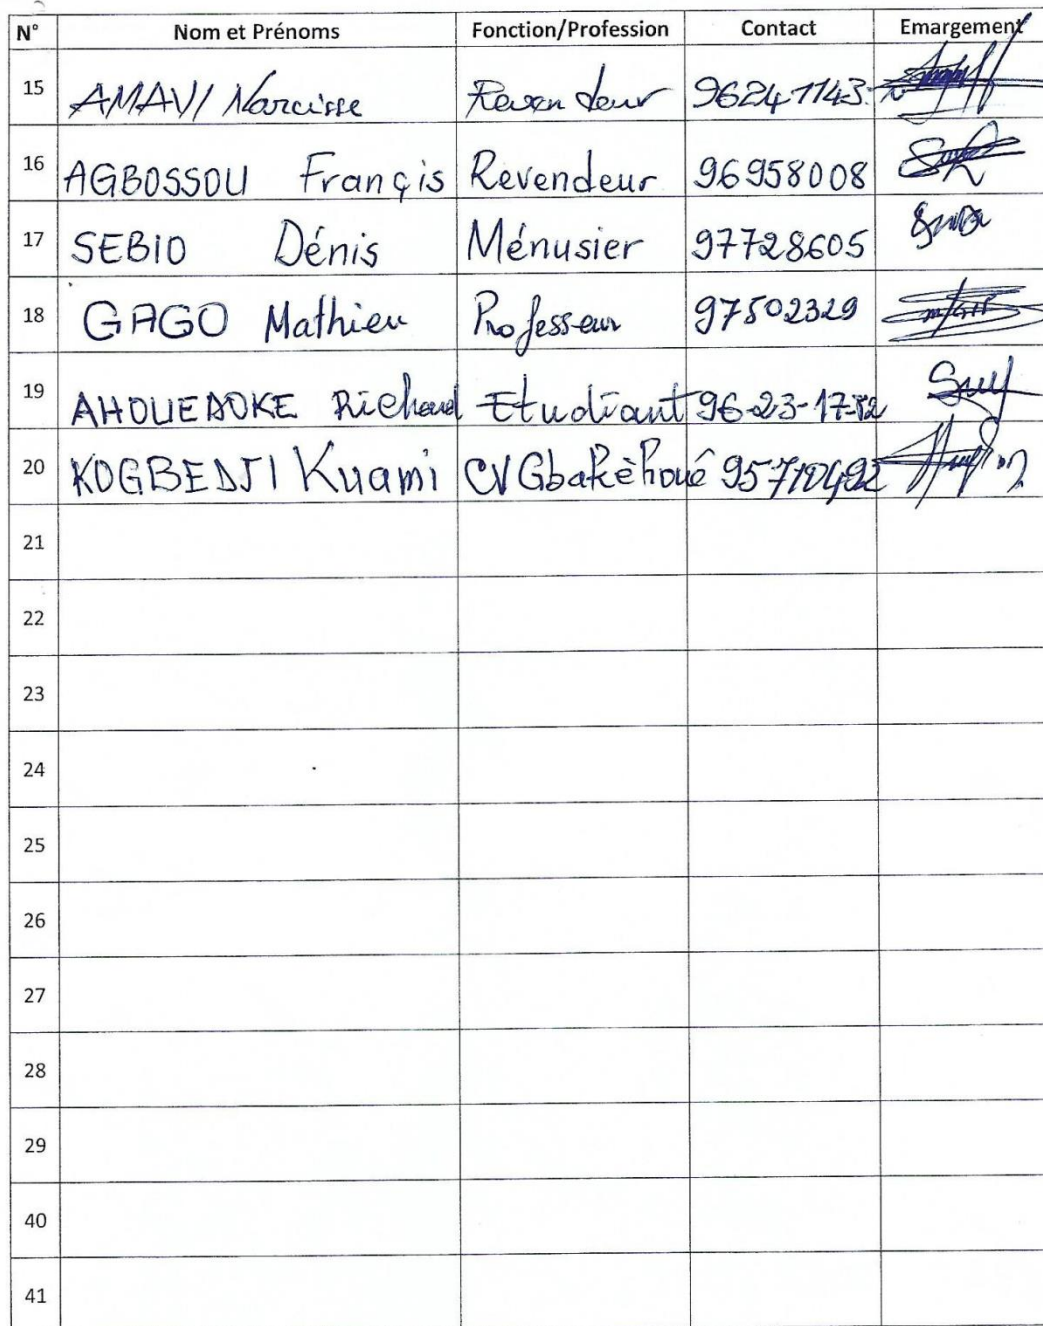 N° Nom et Prénoms Fonction/Profession Contact Emargement
15 AMAVI Narcisse Revendeur 96241143
16 AGBOSSOU Françis Revendeur 96958008
17 SEBIO Dénis Ménusier 97728605
18 GAGO Mathieu Professeur 97502329
19 AHOUEDOKE Richard Etudiant 96-23-17-82
20 KOGBEDJI Kuami CV Gbakèhoué 95710492
21
22
23
24
25
26
27
28
29
40
41